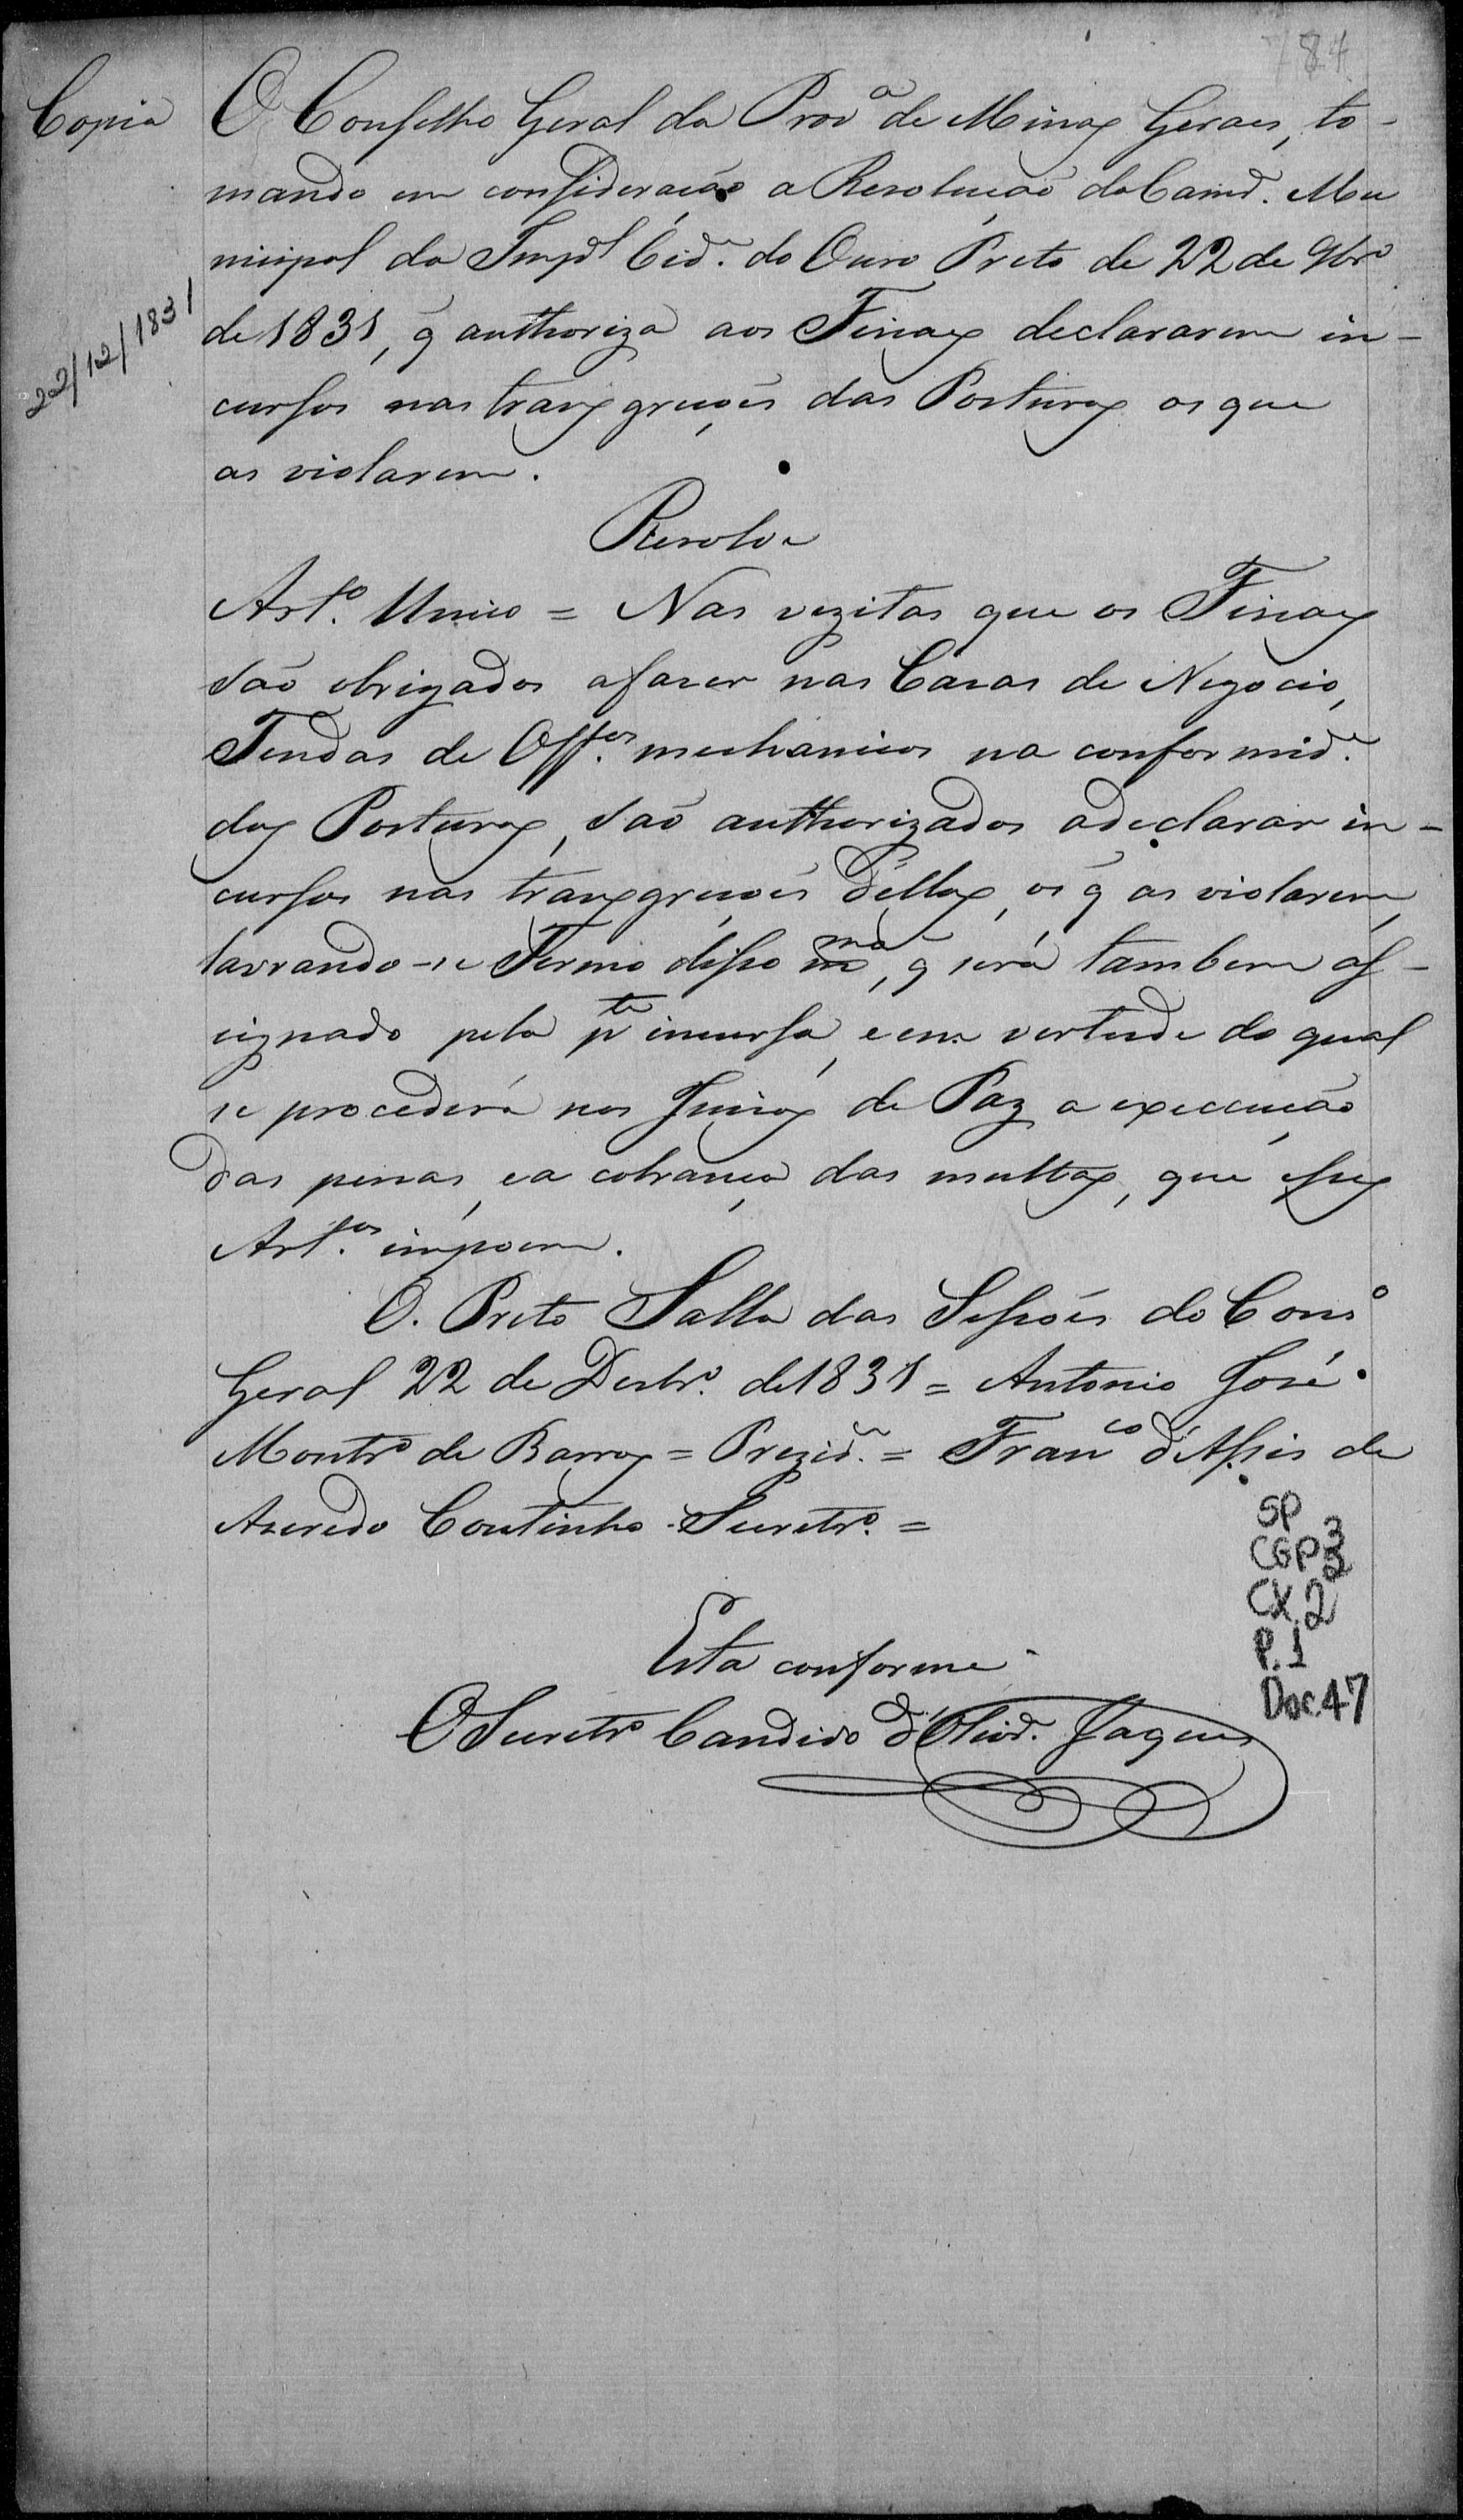 84
Copia
O Conselho Geral da Prov.ª de Minas Geraes, to-
mando em consideração a Resolução da Camr.ª Mu
nicipal da Imp.al Cid.e do Ouro Preto de 22 de 9br.º
22/12/1831
de 1831, q̃ authoriza aos Fiscaes declararem in-
cursos nas transgreções das Posturas os que
as violarem.
Resolve
Art.º Unico = Nas vezitas que os Fiscaes
são obrigados a fazer nas Casas de Negocio,
Tendas de Off.os mechanicos na conformid.e
das Posturas, são authorizados a declarar in-
cursos nas transgreções d'ellas, os q̃ as violarem,
lavrando-se Termo disso m.mo, q̃ será tambem as-
signado pela p.te incursa, e em vertude do qual
se procederá nos Juizos de Paz a execução
das penas, e a cobrança das multas, que esses
Art.os impoem.
O. Preto Salla das Sessões do Cons.º
Geral 22 de Desbr.º de 1831 = Antonio José
Montr.º de Barros = Prezid.e = Fran.co d'Assis de
Aseredo Coutinho - Secretr.º =
Esta conforme
O Secretr.º Candido d'Olivr.ª Jaques
SP
CGP 3
CX. 2
P. 1
Doc. 47